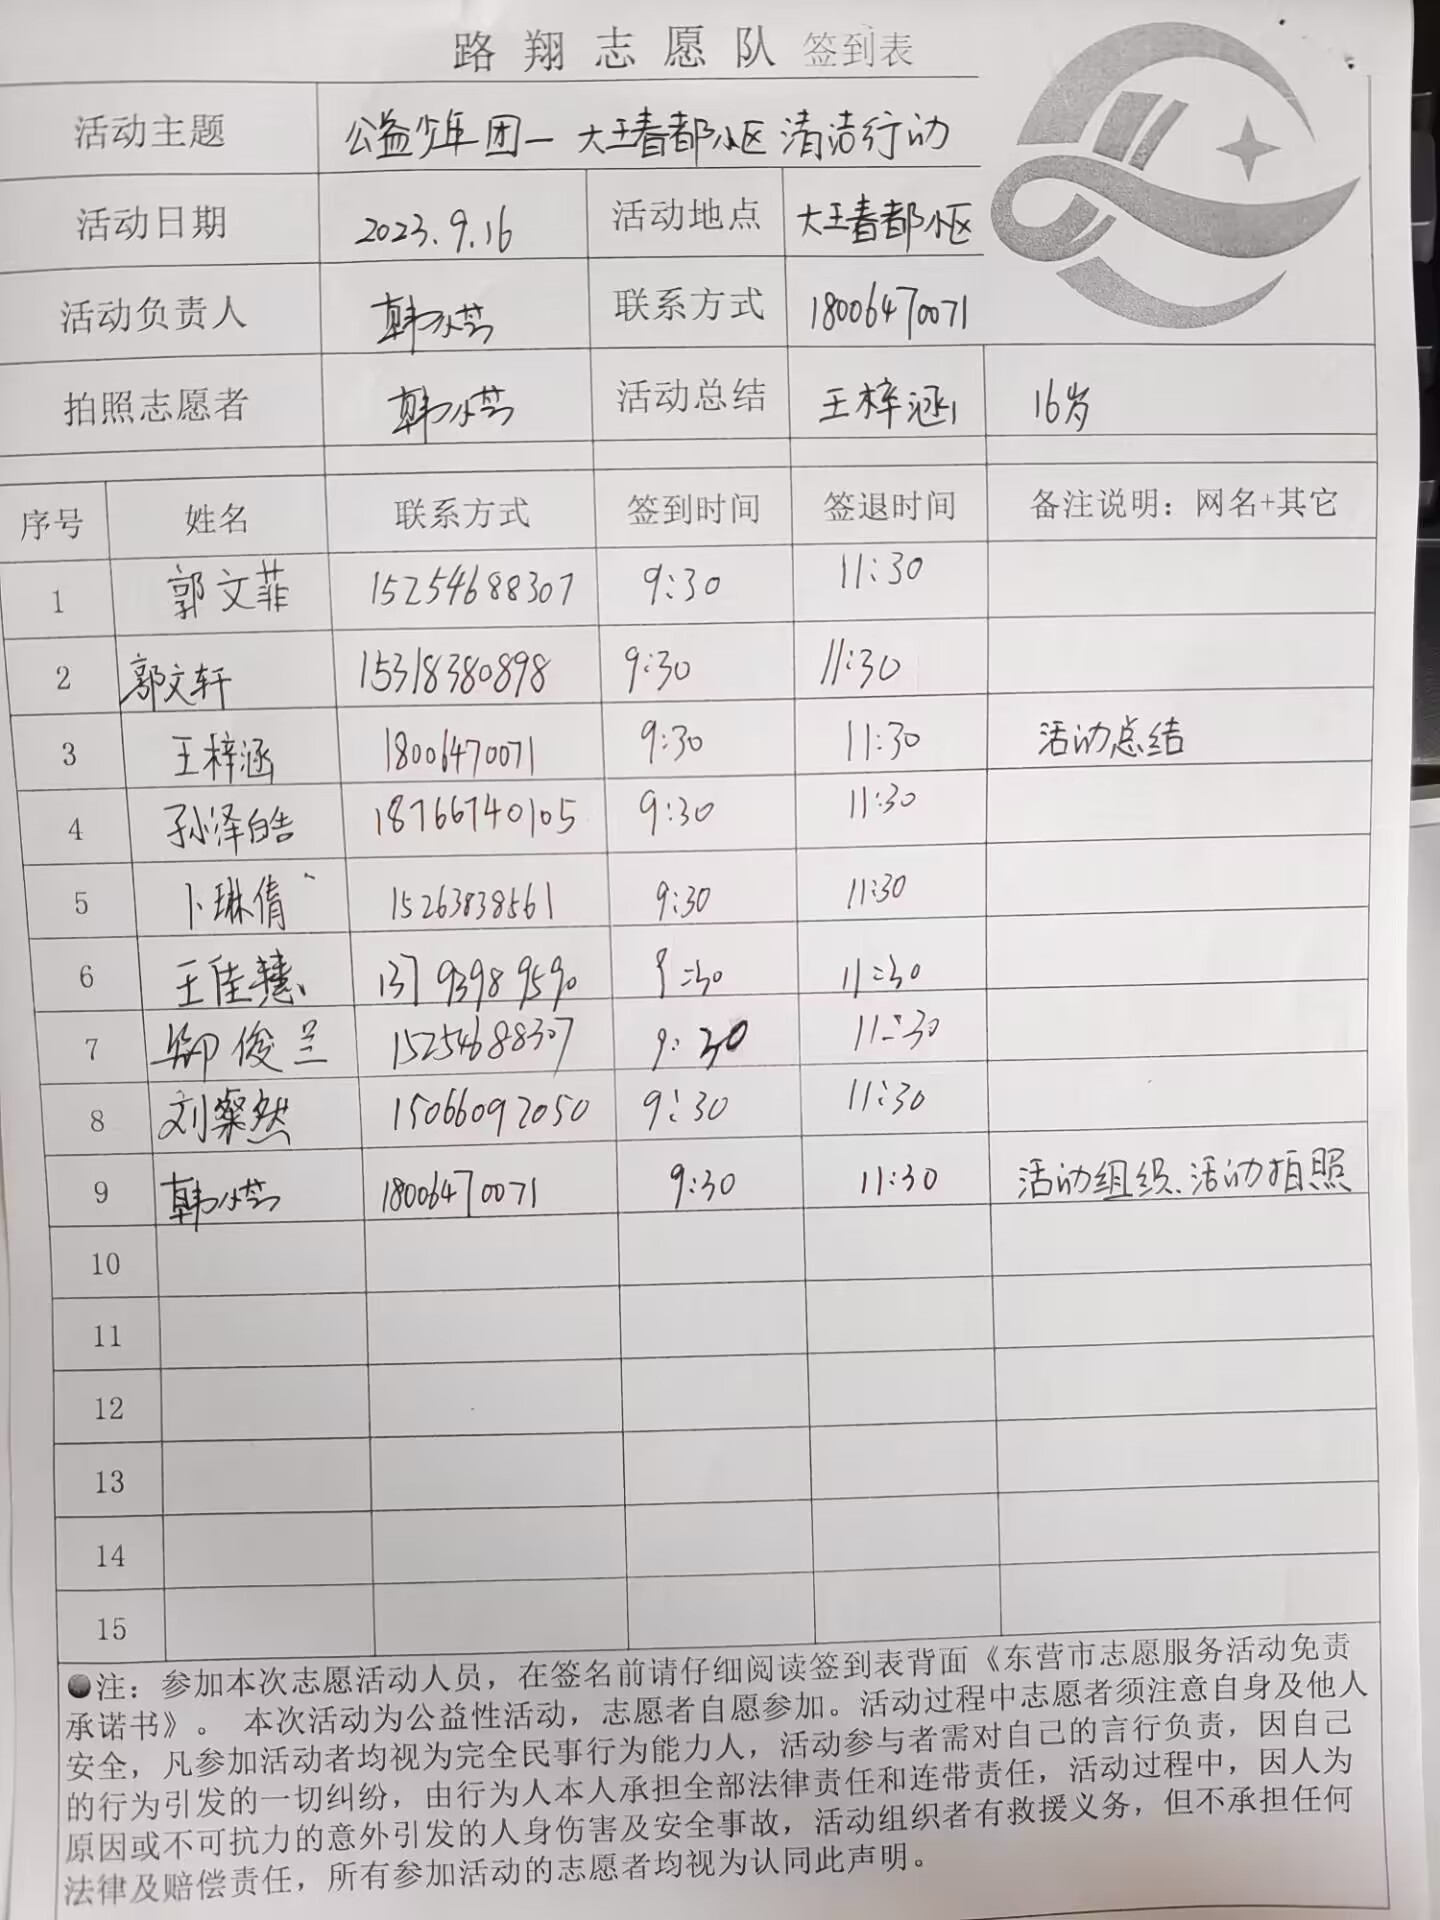 路翔志愿队 签到表
活动主题 公益少年团一大王春都小区清洁行动
活动日期 2023.9.16 活动地点 大王春都小区
活动负责人 韩 联系方式 18006470071
拍照志愿者 韩 活动总结 王梓涵 16岁
序号 姓名 联系方式 签到时间 签退时间 备注说明：网名+其它
1 郭文菲 15254688307 9:30 11:30
2 郭文轩 15318380898 9:30 11:30
3 王梓涵 18006470071 9:30 11:30 活动总结
4 孙泽皓 18766740105 9:30 11:30
5 卜琳倩 15263838561 9:30 11:30
6 王佳慧 13793989590 9:30 11:30
7 俊兰 15254688307 9:30 11:30
8 刘粲然 15066092050 9:30 11:30
9 韩 18006470071 9:30 11:30 活动组织、活动拍照
10
11
12
13
14
15
●注：参加本次志愿活动人员，在签名前请仔细阅读签到表背面《东营市志愿服务活动免责
承诺书》。 本次活动为公益性活动，志愿者自愿参加。活动过程中志愿者须注意自身及他人
安全，凡参加活动者均视为完全民事行为能力人，活动参与者需对自己的言行负责，因自己
的行为引发的一切纠纷，由行为人本人承担全部法律责任和连带责任，活动过程中，因人为
原因或不可抗力的意外引发的人身伤害及安全事故，活动组织者有救援义务，但不承担任何
法律及赔偿责任，所有参加活动的志愿者均视为认同此声明。